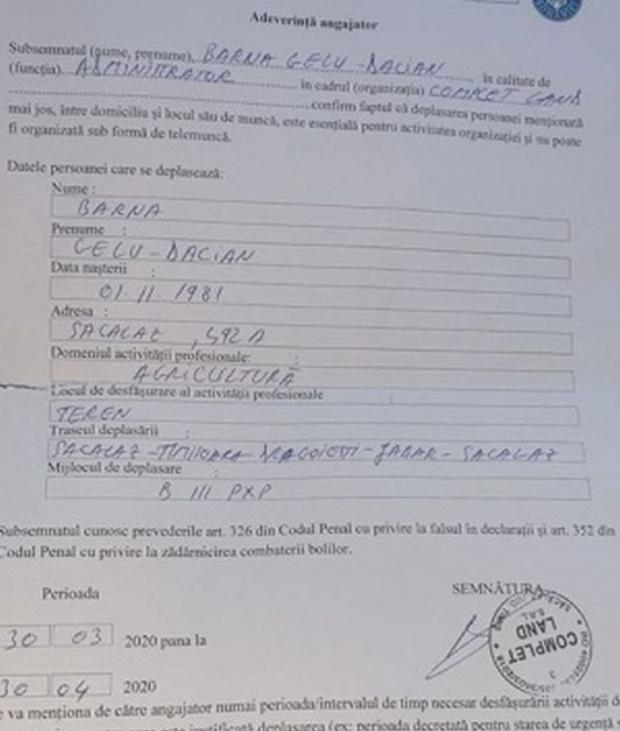 Adeverință angajator
Subsemnatul (nume, prenume), BARNA GELU-DACIAN, în calitate de
(funcția) ADMINISTRATOR în cadrul (organizația) COMPLET LAND
confirm faptul că deplasarea persoanei menționată
mai jos, între domiciliu și locul său de muncă, este esențială pentru activitatea organizației și nu poate
fi organizată sub formă de telemuncă.
Datele persoanei care se deplasează:
Nume :
BARNA
Prenume :
GELU-DACIAN
Data nașterii :
01.11.1981
Adresa :
SACALAZ, 592 A
Domeniul activității profesionale: :
AGRICULTURĂ
Locul de desfășurare al activității profesionale :
TEREN
Traseul deplasării :
SACALAZ - TIMIȘOARA - DRAGOIEȘTI - JABAR - SACALAZ
Mijlocul de deplasare :
B 111 PXP
Subsemnatul cunosc prevederile art. 326 din Codul Penal cu privire la falsul în declarații și art. 352 din
Codul Penal cu privire la zădărnicirea combaterii bolilor.
Perioada
SEMNĂTURA
30 03 2020 pana la
COMPLET
LAND
S.R.L.
30 04 2020
e va menționa de către angajator numai perioada/intervalul de timp necesar desfășurării activității d
justifică deplasarea (ex: perioada decretată pentru starea de urgență